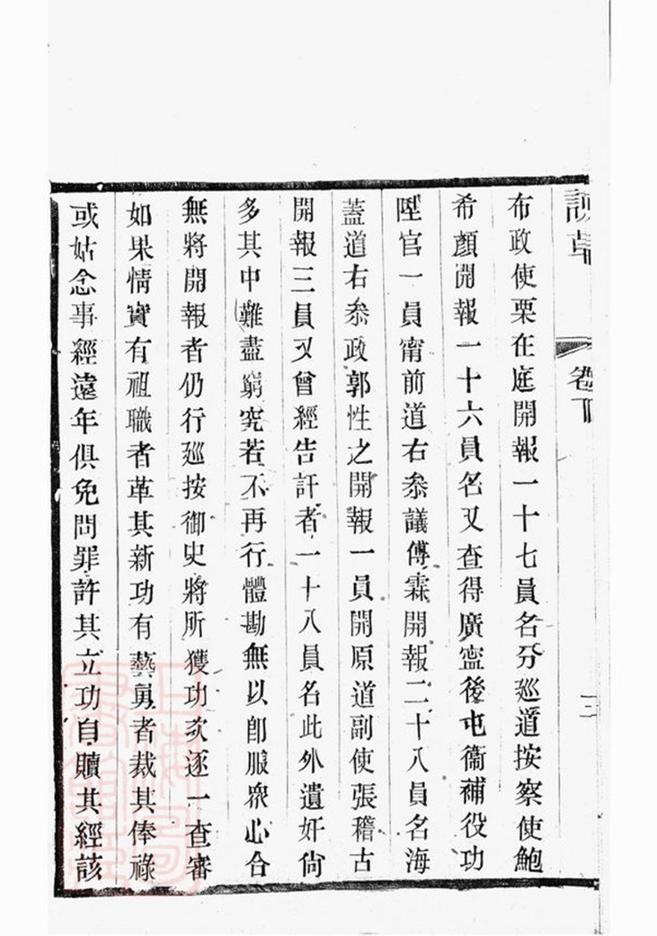 諫草
卷下
三
布政使栗在庭開報一十七員名分廵道按察使鮑
希顏開報一十六員名又查得廣寧後屯衞補役功
陞官一員甯前道右叅議傅霖開報二十八員名海
蓋道右叅政郭性之開報一員開原道副使張稽古
開報三員又曾經告訐者一十八員名此外遺奸尙
多其中難盡窮究若不再行體勘無以卽服衆心合
無將開報者仍行廵按御史將所獲功次逐一查審
如果情實有祖職者革其新功有藝勇者裁其俸祿
或姑念事經遠年俱免問罪許其立功自贖其經該